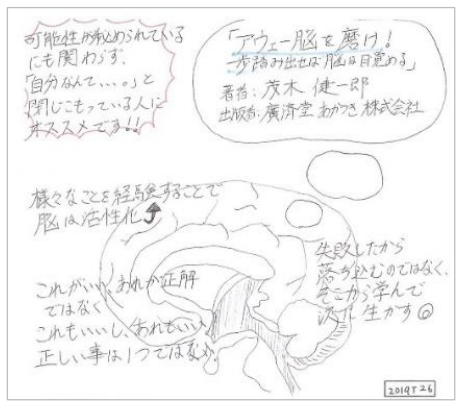 可能性が秘められている
にも関わらず、
「自分なんて、、、。」と
閉じこもっている人に
オススメです!!
「アウェー脳を磨け!
一歩踏み出せば脳は目覚める」
著者:茂木健一郎
出版者:廣済堂あかつき株式会社
様々なことを経験することで
脳は活性化
これがいい、あれが正解
ではなく
これもいいし、あれもいい、
正しい事は1つではない。
失敗したから
落ち込むのではなく、
そこから学んで
次に生かす